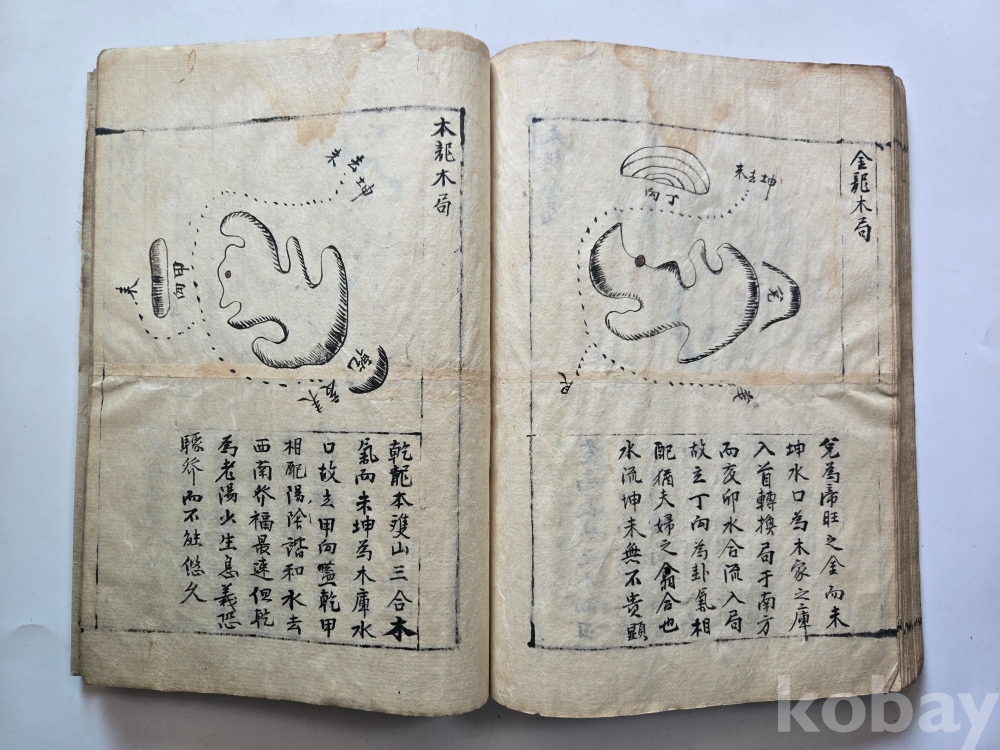 金龍木局
未去坤
向丁
兌
艮
兌為帝旺之金而未
坤水口為木家之庫
入首轉換局于南方
而亥卯水合流入局
故立丁向為卦氣相
配猶夫婦之翕合也
水流坤未無不貴顯
木龍木局
未去坤
向甲
來
乾
乾龍本雙山三合木
氣而未坤為木庫水
口故立甲向嘘乾甲
相配陽陰諧和水去
西南發福最速但乾
為老陽火生息義恐
驟發而不能悠久
kobay